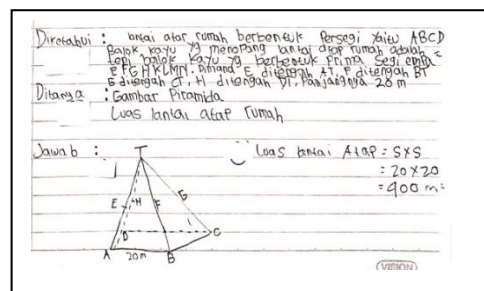 Diketahui : lantai atar rumah berbentuk Persegi yaitu ABCD
Balok kayu yg menopang lantai atap rumah adalah =
tepi balok kayu yg berbentuk Prima segi empa
E F G H K L M N. Dimana E ditengah AT, F ditengah BT
G ditengah CT, H ditengah DT, Panjangnya 20 m
Ditanya : Gambar Piramida
Luas lantai atap rumah
Jawab :
Luas lantai Atap = S x S
= 20 x 20
= 400 m²
T
E H F G
D C
A 20 m B
(VISION)